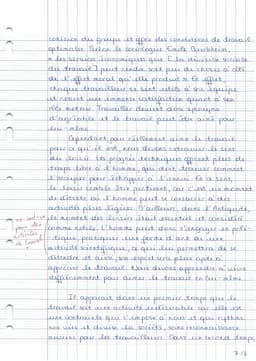 cohésion du groupe et offre des conditions de travail
optimales. Selon le sociologue Emile Durkheim,
« les services économiques que [la division sociale
du travail] peut rendre sont peu de choses à côté
de l'effet moral qu'elle produit ». En effet,
chaque travailleur se sent utile à son équipe
et ressent une immense satisfaction quant à ses
réels métiers. Travailler devient donc synonyme
d'agréable et le travail peut être aimé pour
lui-même.
Cependant pour réellement aimer le travail
pour ce qu'il est, nous devons retrouver le sens
du loisir. Les progrès techniques offrent plus de
temps libre à l'homme, qui doit trouver comment
s'occuper pour échapper à l'ennui. En ce sens,
le loisir semble être pertinent, car c'est un moment
de détente où l'homme peut se consacrer à des
activités plus légères. D'ailleurs, dans l'Antiquité,
le moment des loisirs était essentiel et considéré
comme noble. L'homme peut donc s'engager en poli-
tique, pratiquer une forme d'art ou une
activité scientifique, ce qui lui permettra de se
détendre et ainsi, son esprit sera plus apte à
apprécier le travail. Nous devons apprendre à vivre
différemment pour aimer le travail en lui-même.
Il apparaît dans un premier temps que le
travail est une activité indésirable car elle est
une contrainte qui s'impose à nous et qui rythme
nos vies et divise la société, sans reconnaissance
aucune par les travailleurs. Dans un second temps,
7/8